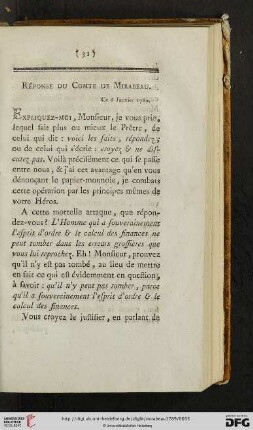 ( 31 )
RÉPONSE DU COMTE DE MIRABEAU.
Ce 8 Janvier 1789.
EXPLIQUEZ-MOI, Monsieur, je vous prie,
lequel fait plus ou mieux le Prêtre, de
celui qui dit : voici les faits, répondez ;
ou de celui qui s'écrie : croyez & ne dis-
cutez pas. Voilà précisément ce qui se passe
entre nous, & j'ai cet avantage qu'en vous
dénonçant le papier-monnoie, je combats
cette opération par les principes mêmes de
votre Héros.
A cette mortelle attaque, que répon-
dez-vous ? L'Homme qui a souverainement
l'esprit d'ordre & le calcul des finances ne
peut tomber dans les erreurs grossières que
vous lui reprochez. Eh ! Monsieur, prouvez
qu'il n'y est pas tombé, au lieu de mettre
en fait ce qui est évidemment en question,
à savoir : qu'il n'y peut pas tomber, parce
qu'il a souverainement l'esprit d'ordre & le
calcul des finances.
Vous croyez le justifier, en parlant de
UNIVERSITÄTS-
BIBLIOTHEK
HEIDELBERG
© Universitätsbibliothek Heidelberg
DFG